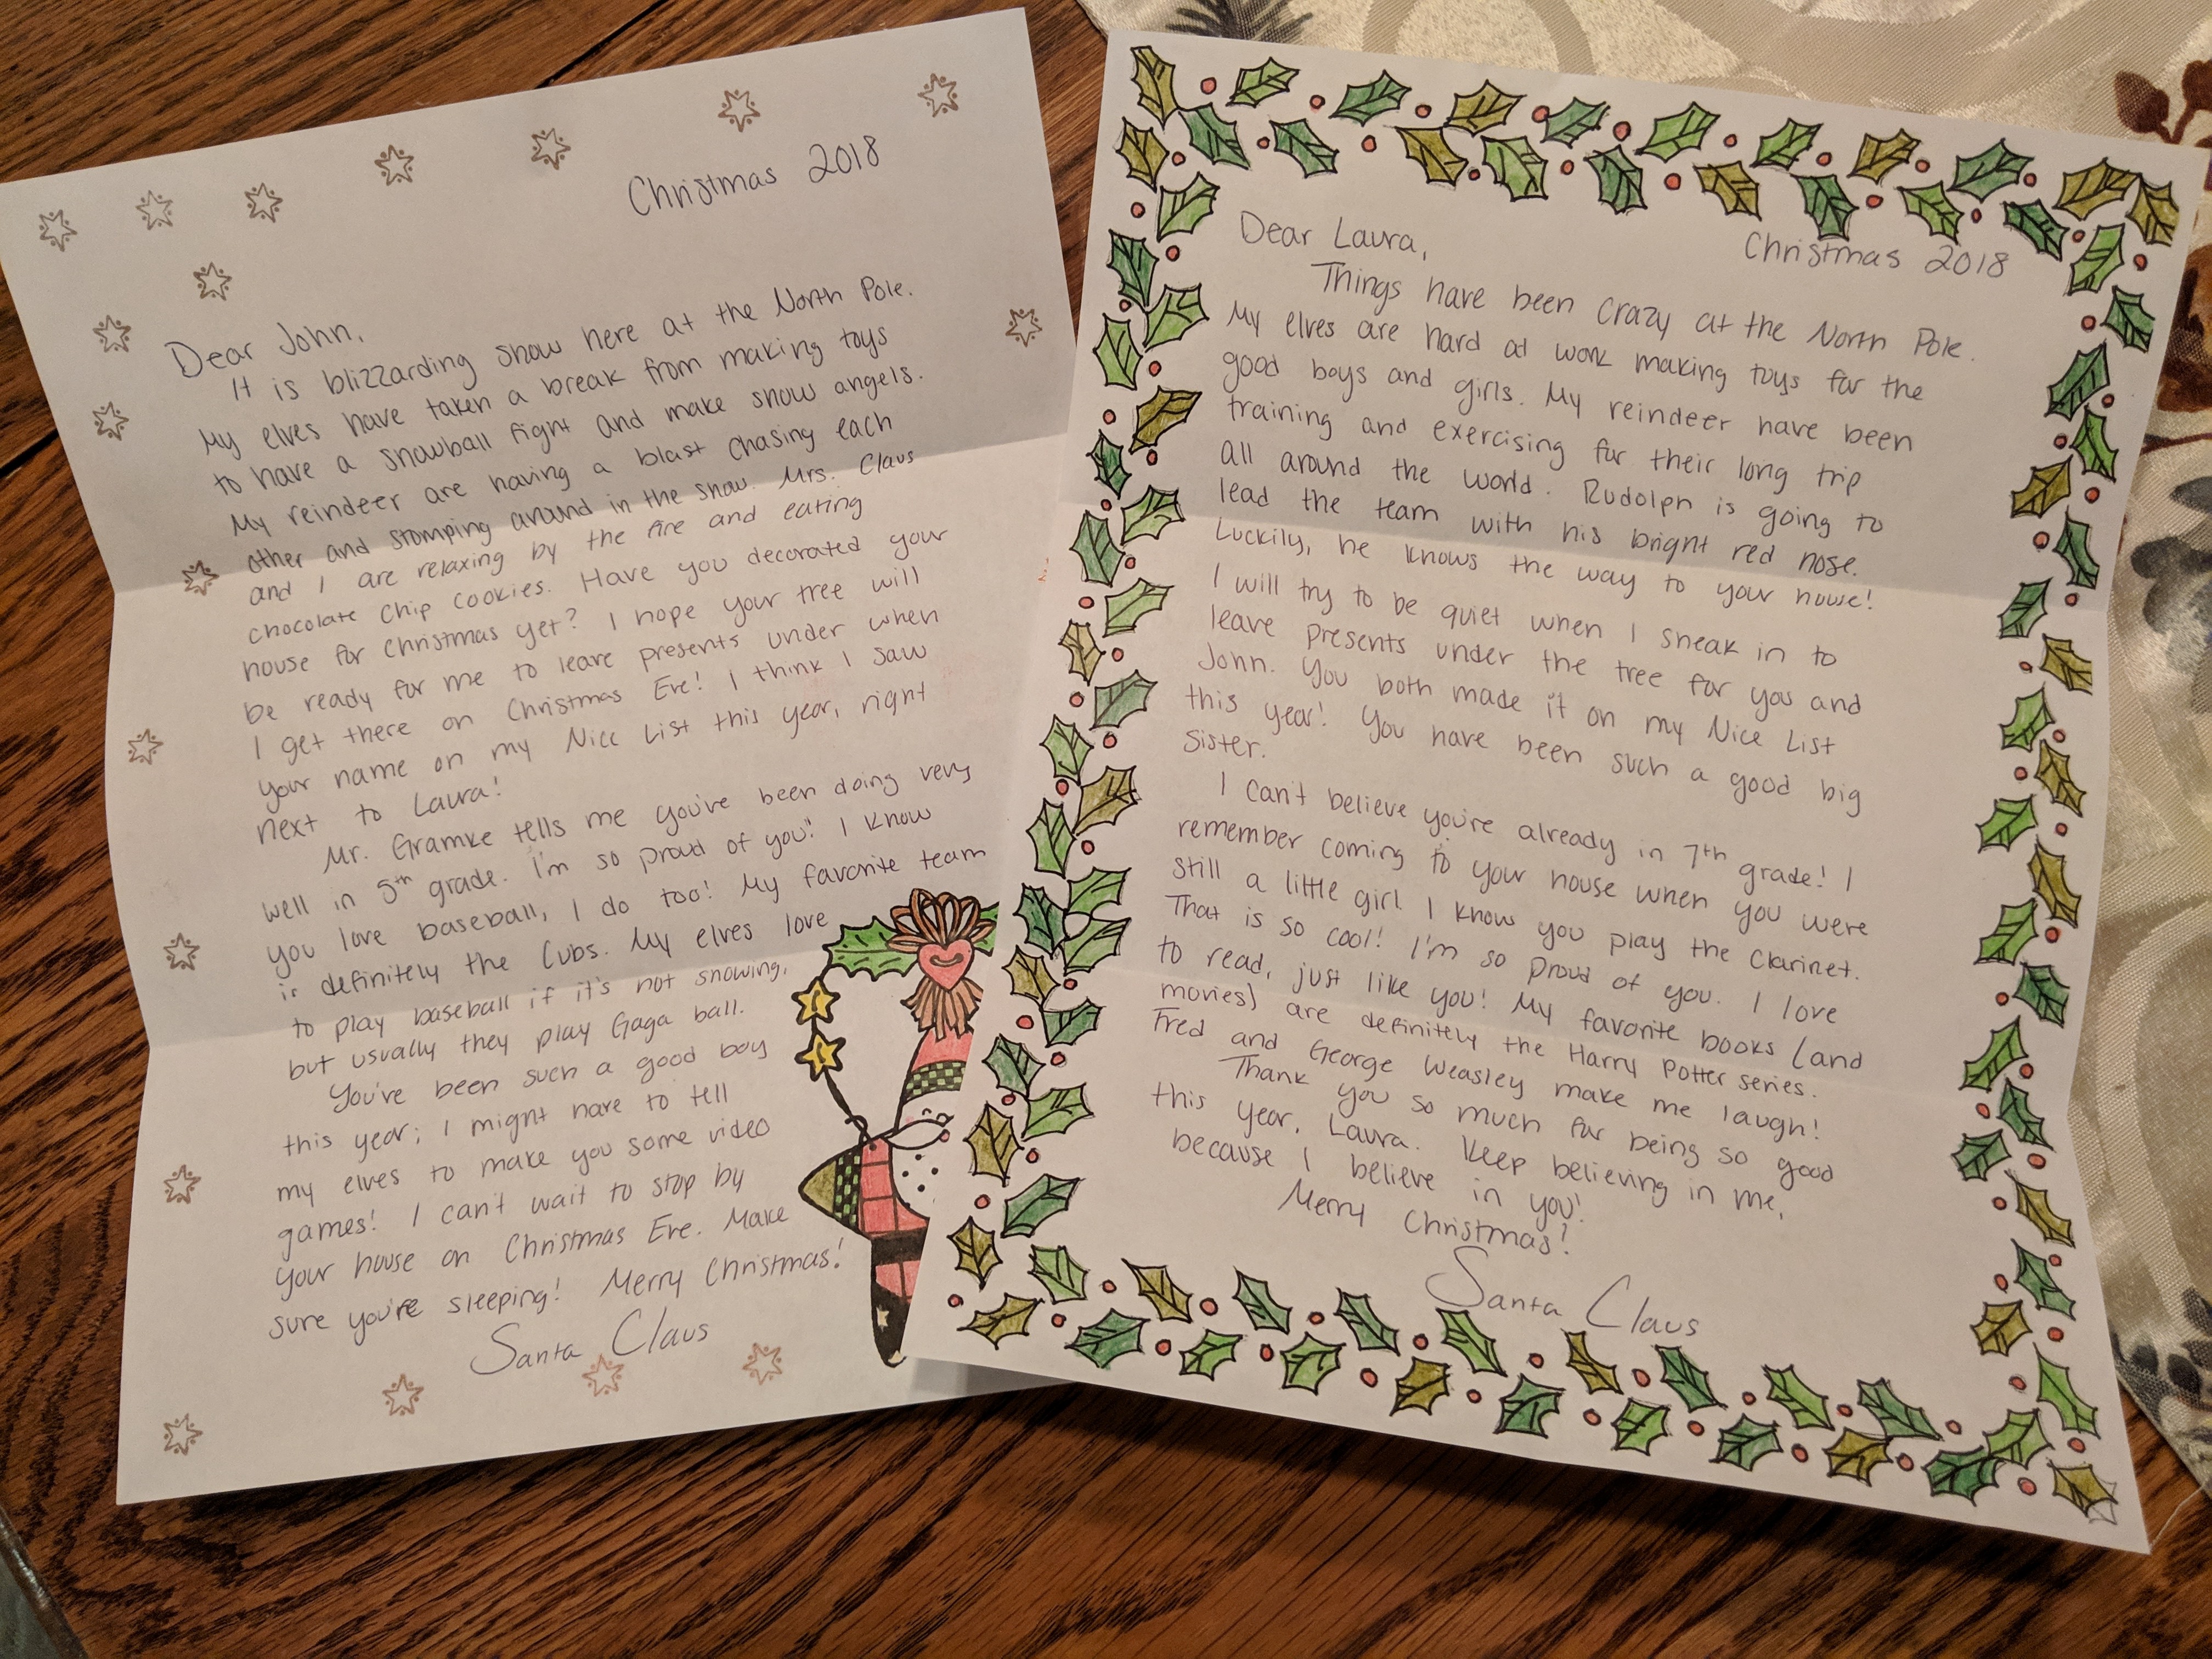 Christmas 2018
Dear John,
It is blizzarding snow here at the North Pole.
My elves have taken a break from making toys
to have a snowball fight and make snow angels.
My reindeer are having a blast chasing each
other and stomping around in the snow. Mrs. Claus
and I are relaxing by the fire and eating
chocolate chip cookies. Have you decorated your
house for Christmas yet? I hope your tree will
be ready for me to leave presents under when
I get there on Christmas Eve! I think I saw
your name on my Nice List this year, right
next to Laura!
Mr. Gramke tells me you've been doing very
well in 5th grade. I'm so proud of you! I know
you love baseball, I do too! My favorite team
is definitely the Cubs. My elves love
to play baseball if it's not snowing,
but usually they play Gaga ball.
You've been such a good boy
this year; I might have to tell
my elves to make you some video
games! I can't wait to stop by
your house on Christmas Eve. Make
sure you're sleeping! Merry Christmas!
Santa Claus
Dear Laura,
Christmas 2018
Things have been crazy at the North Pole.
My elves are hard at work making toys for the
good boys and girls. My reindeer have been
training and exercising for their long trip
all around the world. Rudolph is going to
lead the team with his bright red nose.
Luckily, he knows the way to your house!
I will try to be quiet when I sneak in to
leave presents under the tree for you and
John. You both made it on my Nice List
this year! You have been such a good big
sister.
I can't believe you're already in 7th grade! I
remember coming to your house when you were
still a little girl. I know you play the clarinet.
That is so cool! I'm so proud of you. I love
to read, just like you! My favorite books (and
movies) are definitely the Harry Potter series.
Fred and George Weasley make me laugh!
Thank you so much for being so good
this year, Laura. Keep believing in me,
because I believe in you!
Merry Christmas!
Santa Claus